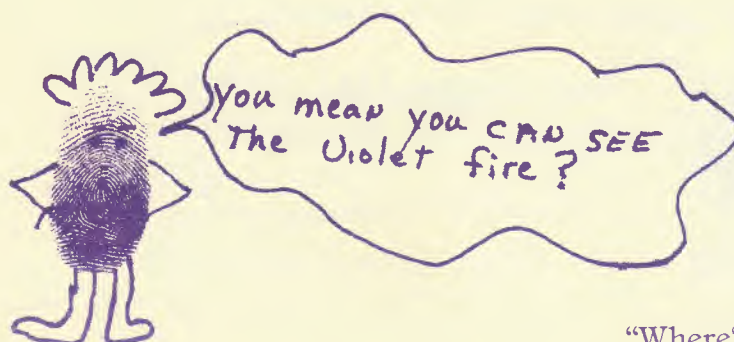 you mean you CAN SEE
The Violet fire?
"Where